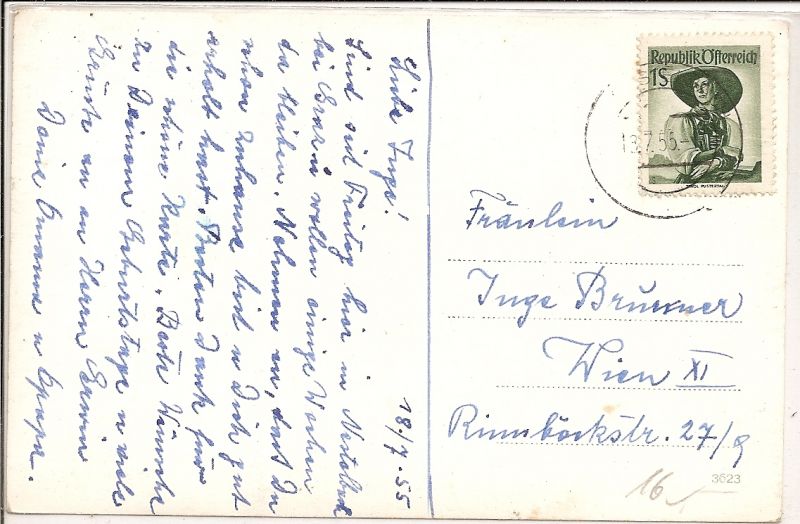 Liebe Inge!
18./7.55
Sind seit Freitag hier in
bei Erna u wollen einige Wochen
da bleiben. Nehmen an, dass Du
schon zuhause bist u Dich gut
erholt hast. Besten Dank für
die schöne Karte. Beste Wünsche
zu Deinem Geburtstage u viele
Grüsse an an Herrn Erwin
Deine Omama u Opapa.
Republik Österreich
1S
TIROL PUSTERTAL
18.7.55-
Fräulein
Inge Brunner
Wien XI
Rinnböckstr. 27/9
3623
16